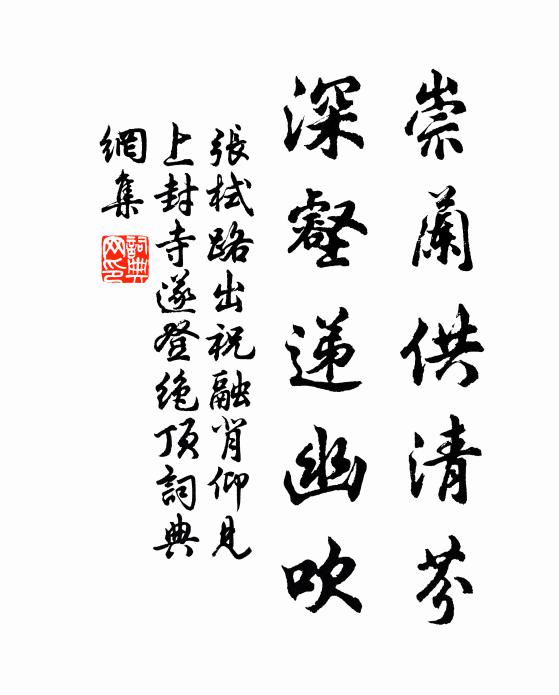 崇蘭供清芬
深壑遞幽吹
張栻路出祝融背仰見
上封寺遂登絶頂詞典
網集
詞典網印